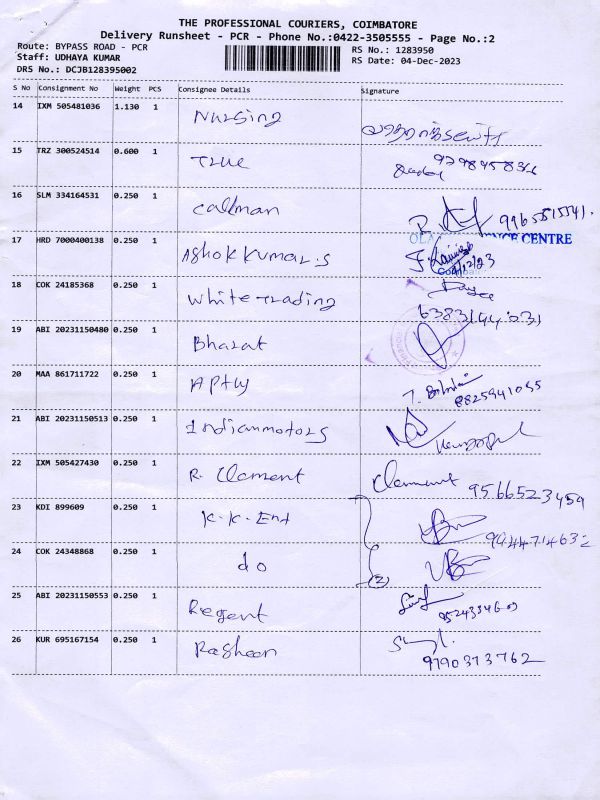 THE PROFESSIONAL COURIERS, COIMBATORE
Delivery Runsheet - PCR - Phone No.:0422-3505555 - Page No.:2
Route: BYPASS ROAD - PCR
RS No.: 1283950
Staff: UDHAYA KUMAR
RS Date: 04-Dec-2023
DRS No.: DCJB128395002
S No Consignment No Weight PCS Consignee Details Signature
14 IXM 505481036 1.130 1 Nursing
15 TRZ 300524514 0.600 1 True
16 SLM 334164531 0.250 1 Callman
R. 9965515541.
CENTRE
17 HRD 7000400138 0.250 1 Ashok Kumar.s
18 COK 24185368 0.250 1 White Trading
6383144231
19 ABI 20231150480 0.250 1 Bharat
20 MAA 861711722 0.250 1 Aptly
8825941055
21 ABI 20231150513 0.250 1 Indianmotors
22 IXM 505427430 0.250 1 R. Clement Clement 9566523459
23 KDI 899609 0.250 1 K.K. Ent
9044714632
24 COK 24348868 0.250 1 do (2)
25 ABI 20231150553 0.250 1 Regent
26 KUR 695167154 0.250 1 Rasheen
9790373762